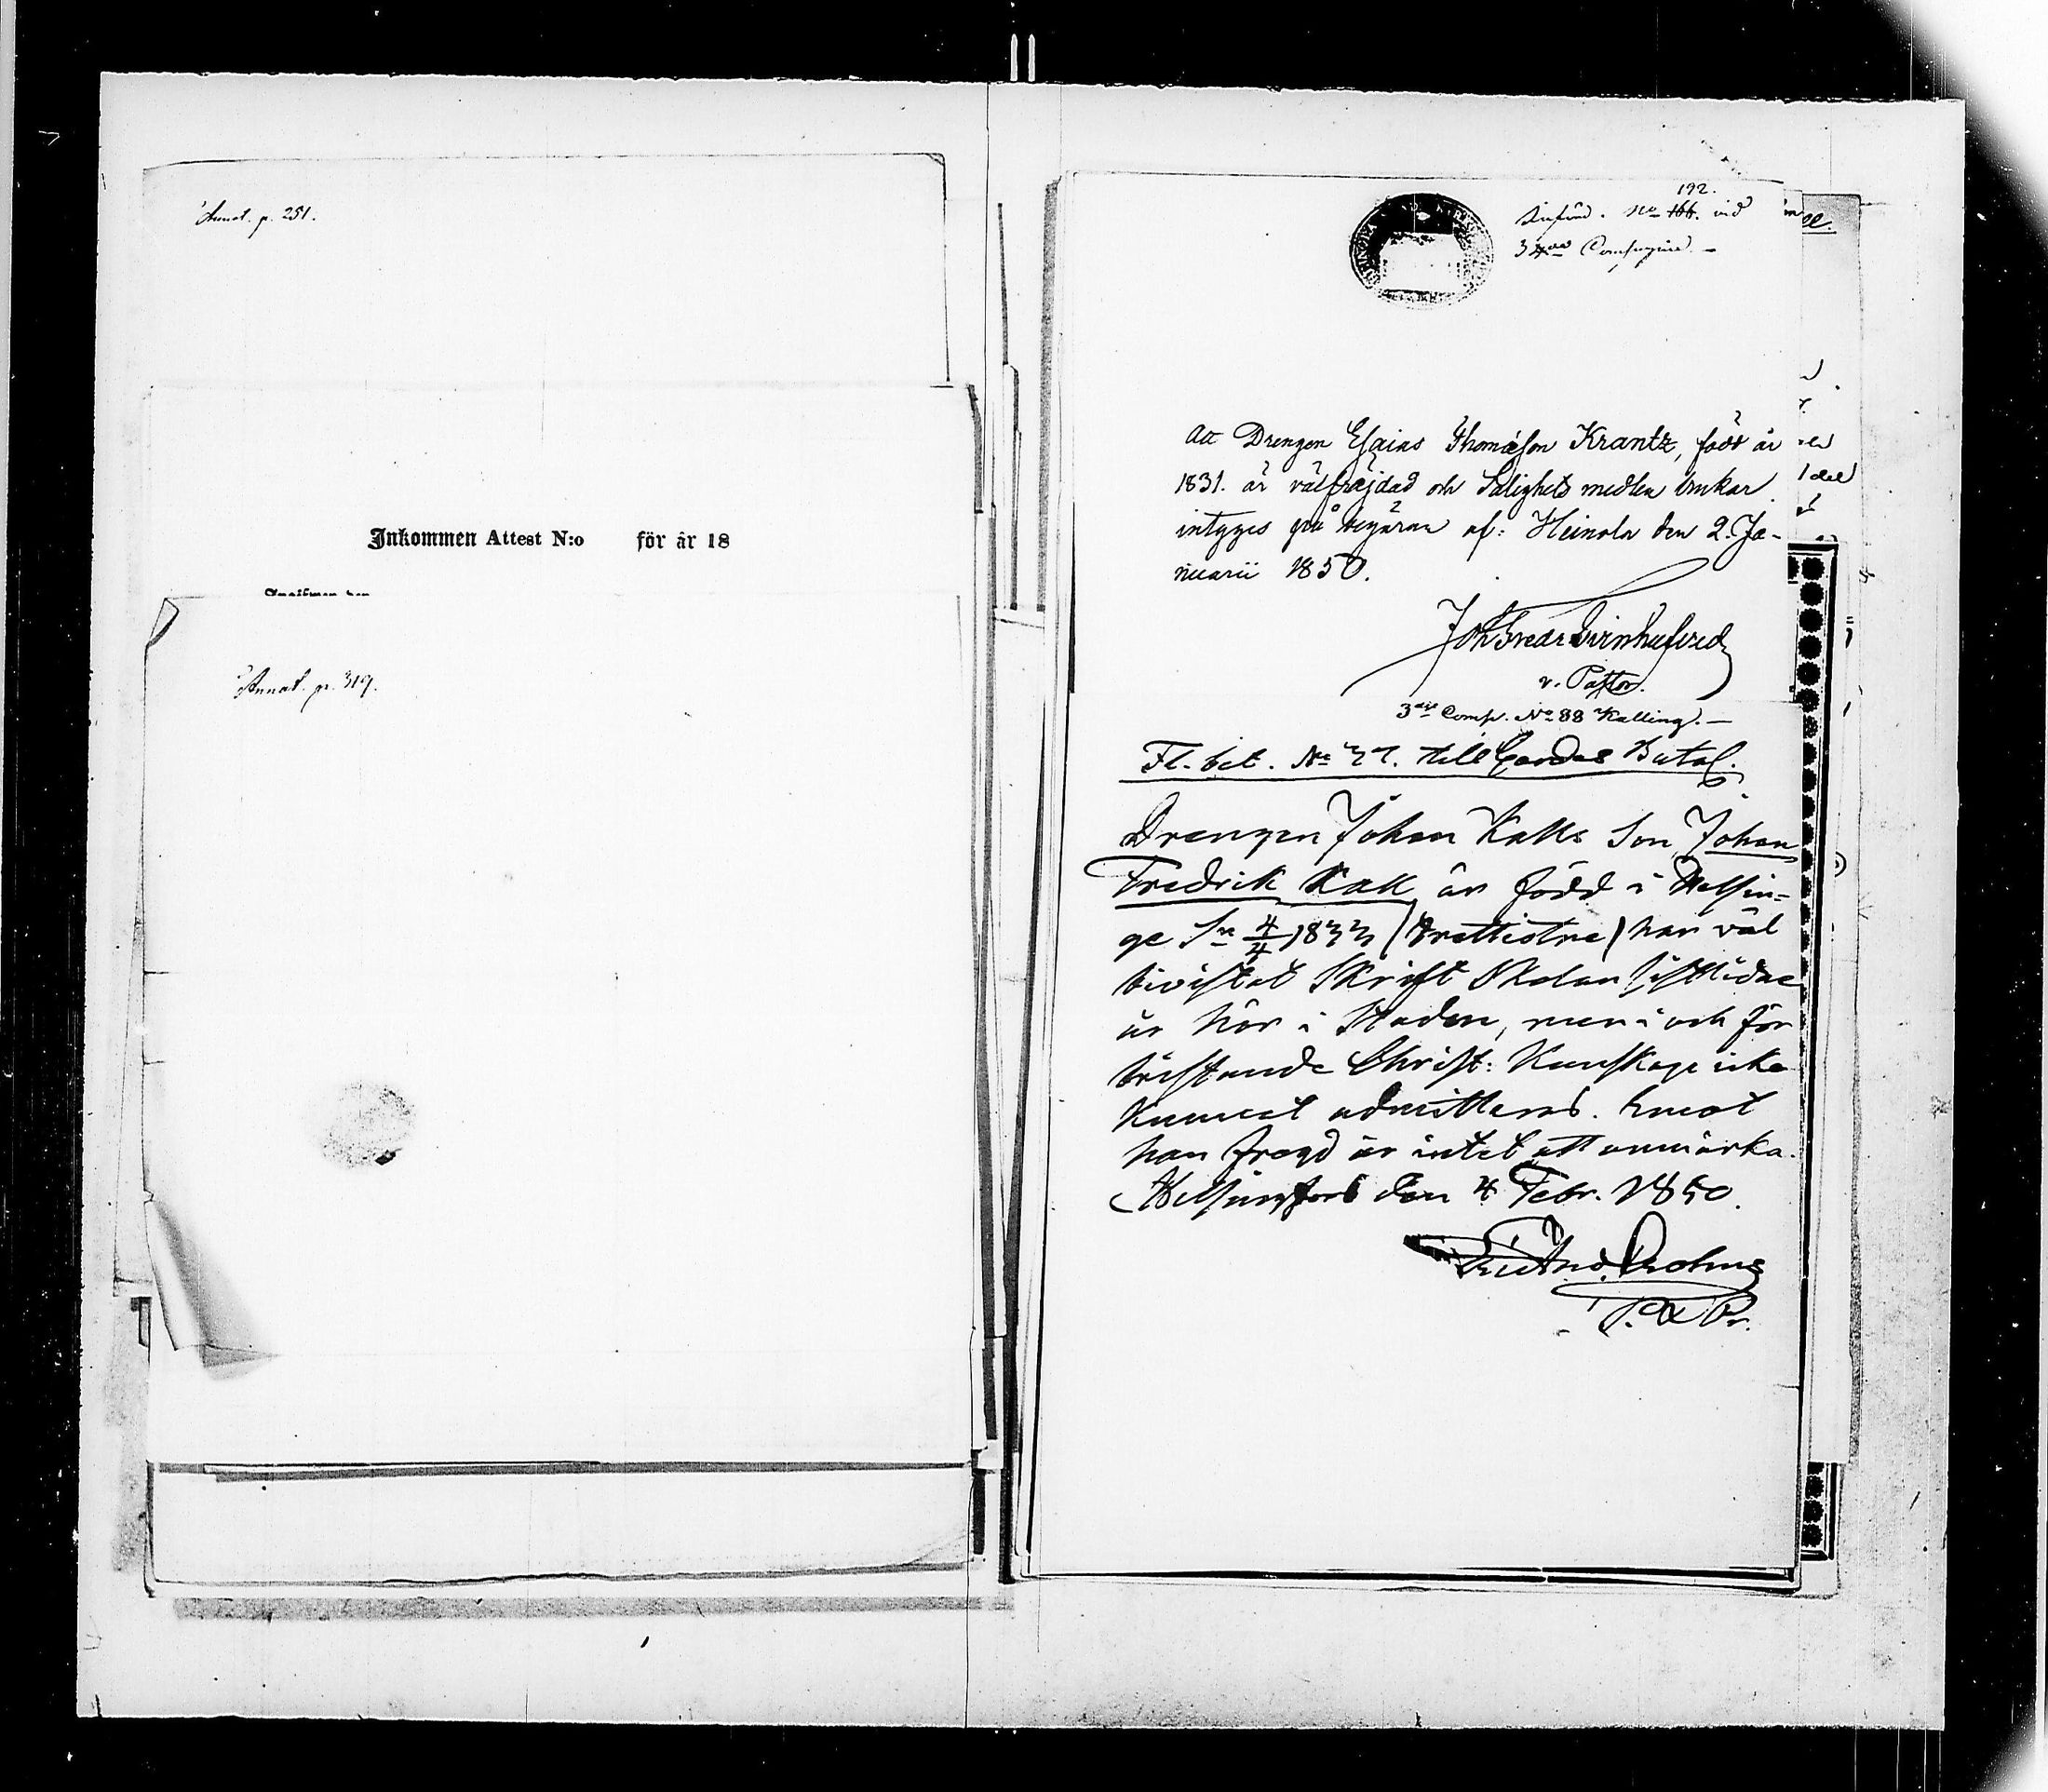 Annot. p. 251.
Inkommen Attest N:o för år 18
Annot. p. 319.
192.
Införd. No 166. vid
3 Compagnie. –
Att Drengen Esaias Thomasson Krantz, född år
1831. är välfräjdad och Salighets medlen brukar
intyges på begäran af: Heinola den 2. Ja-
nuarii 1850.
Joh Fredr Svinhufvud
v. Pastor.
3dje Comp. No 88 Kalling. –
Fl. bet. No 37. till Gardes Batal.
Drengen Johan Kalls Son, Johan
Fredrik Kall är född i Helsin-
ge Sn 4/4 1833 (trettiotre) har väl
bivistat Skrift Skolan sistlidne
år här i Staden, men i och för
bristande Christ: Kunskap icke
kunnat admitteras. Emot
han fregd är intet att anmärka.
Helsingfors den 4 Febr. 1850.